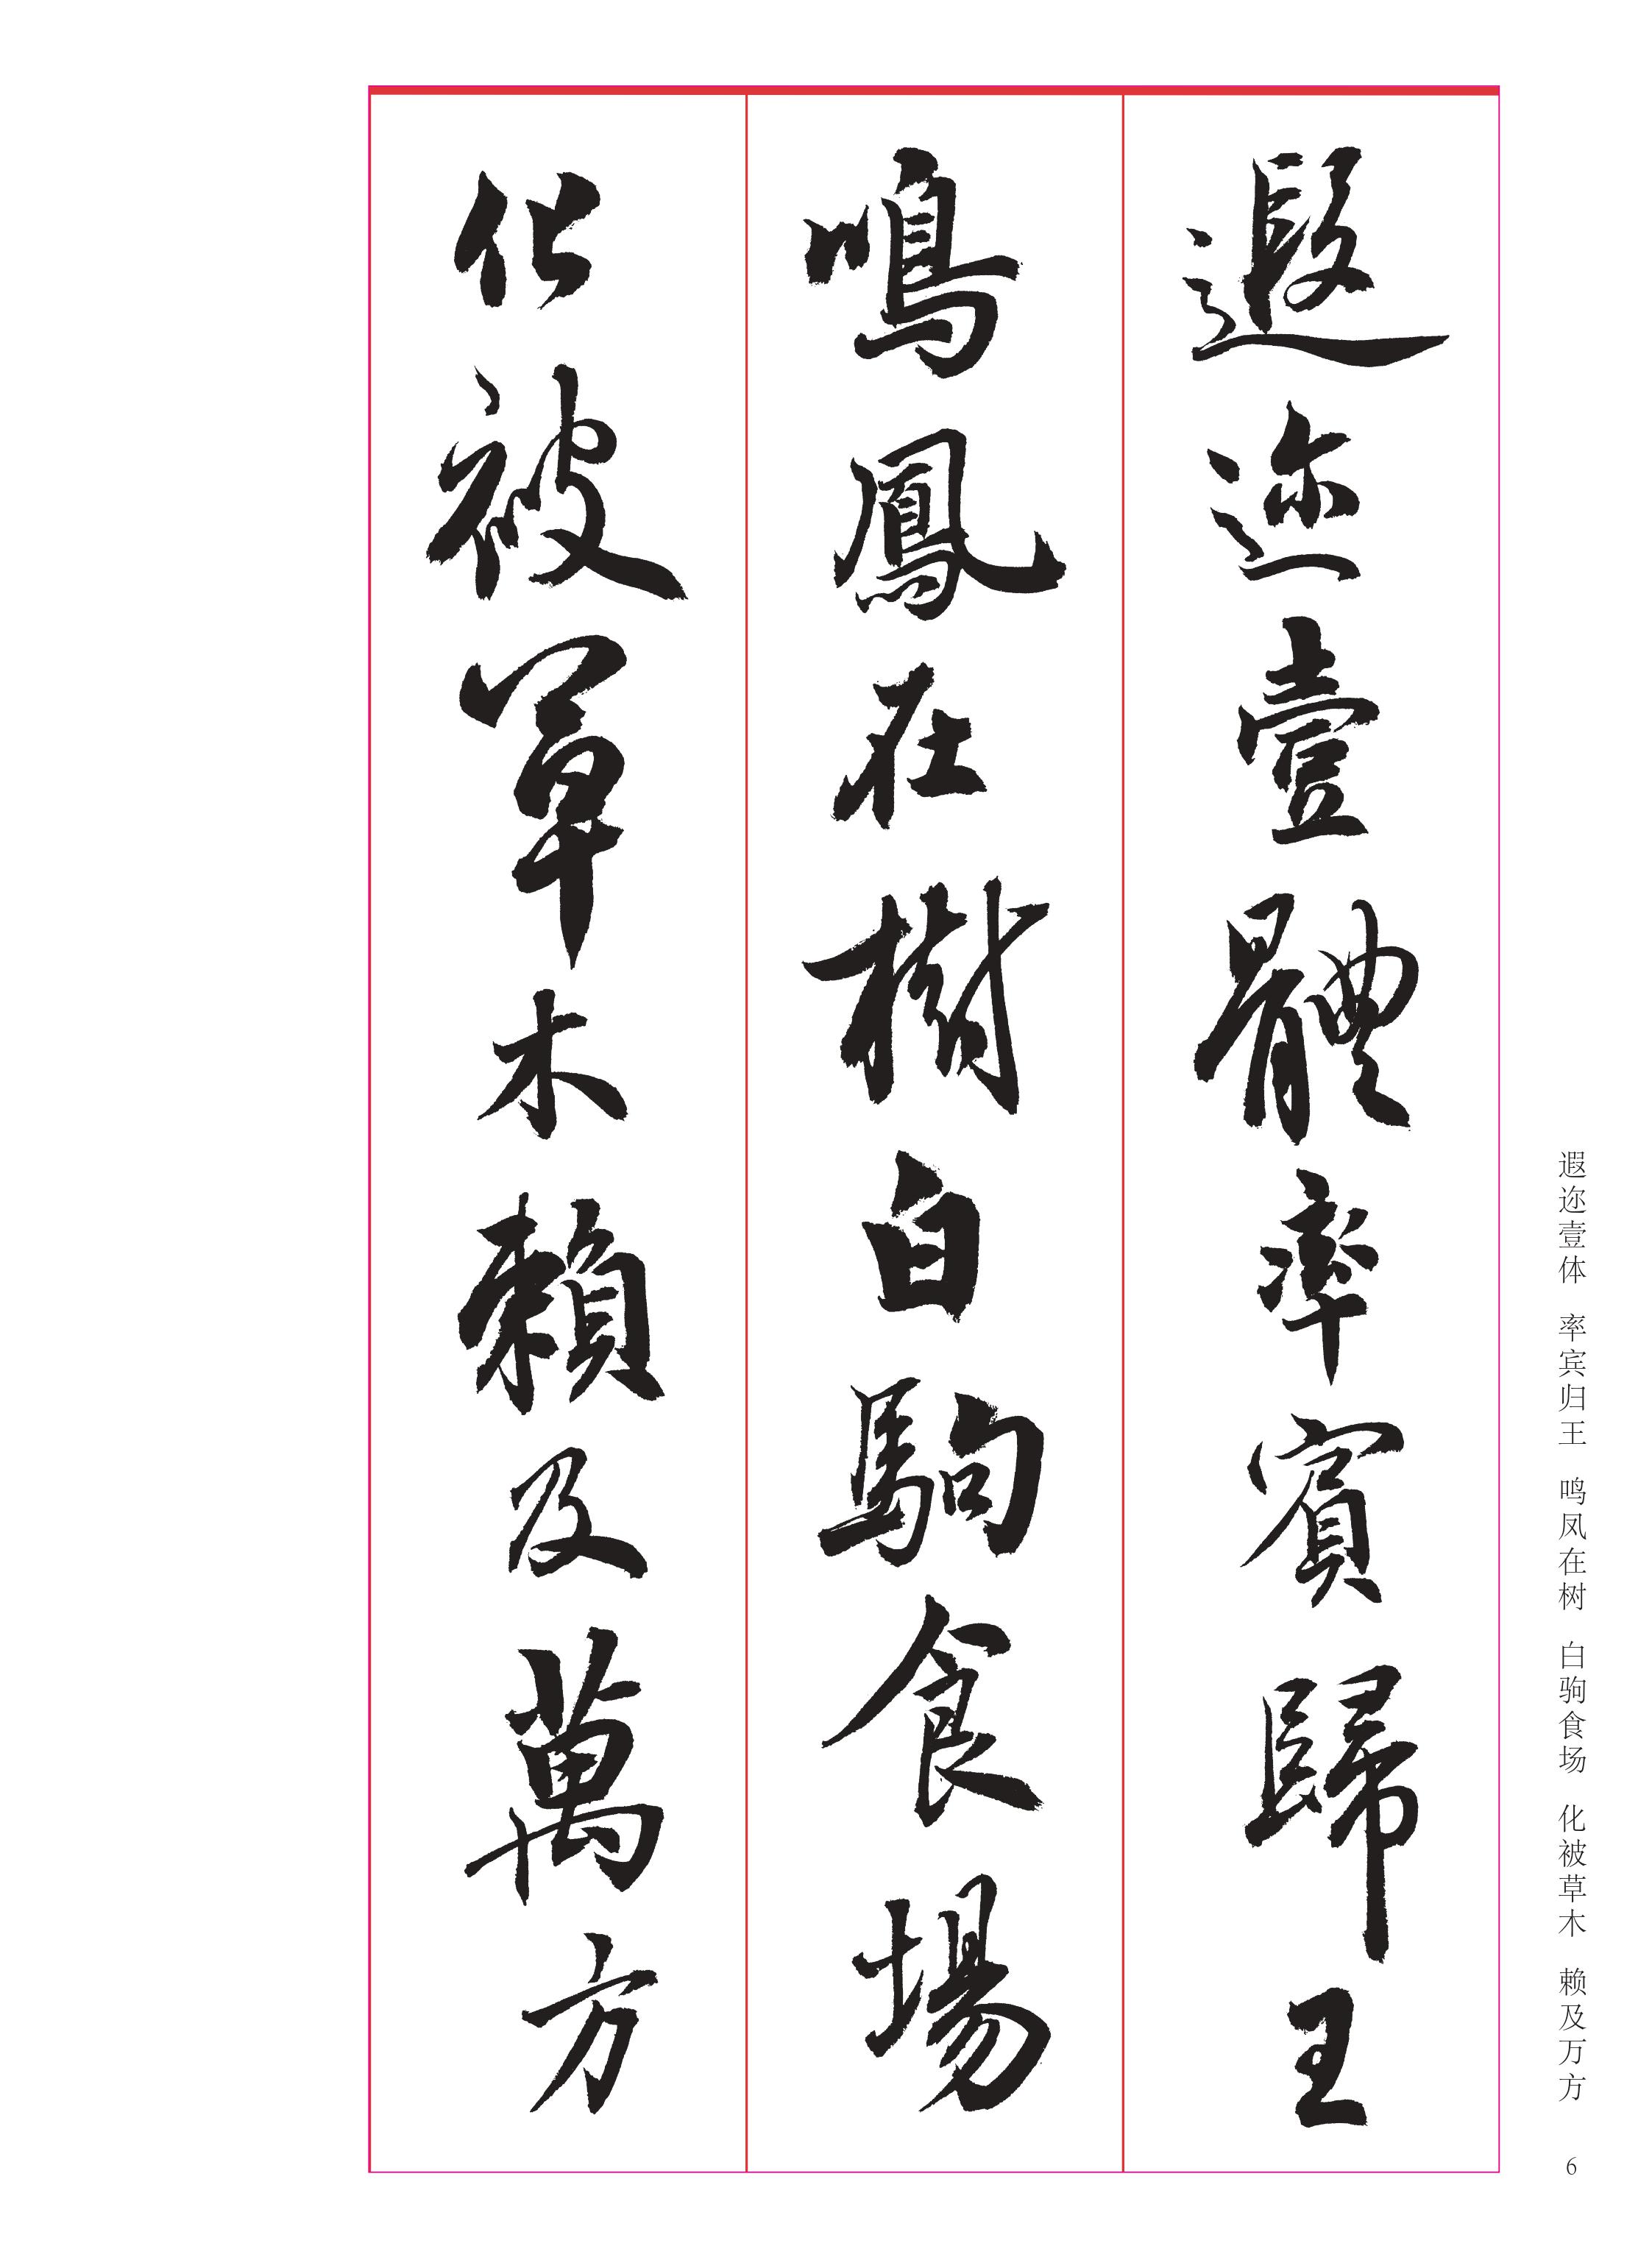 遐迩壹體率賓歸王
鳴鳳在樹白駒食場
化被草木賴及萬方
遐迩壹体 率宾归王 鸣凤在树 白驹食场 化被草木 赖及万方
6